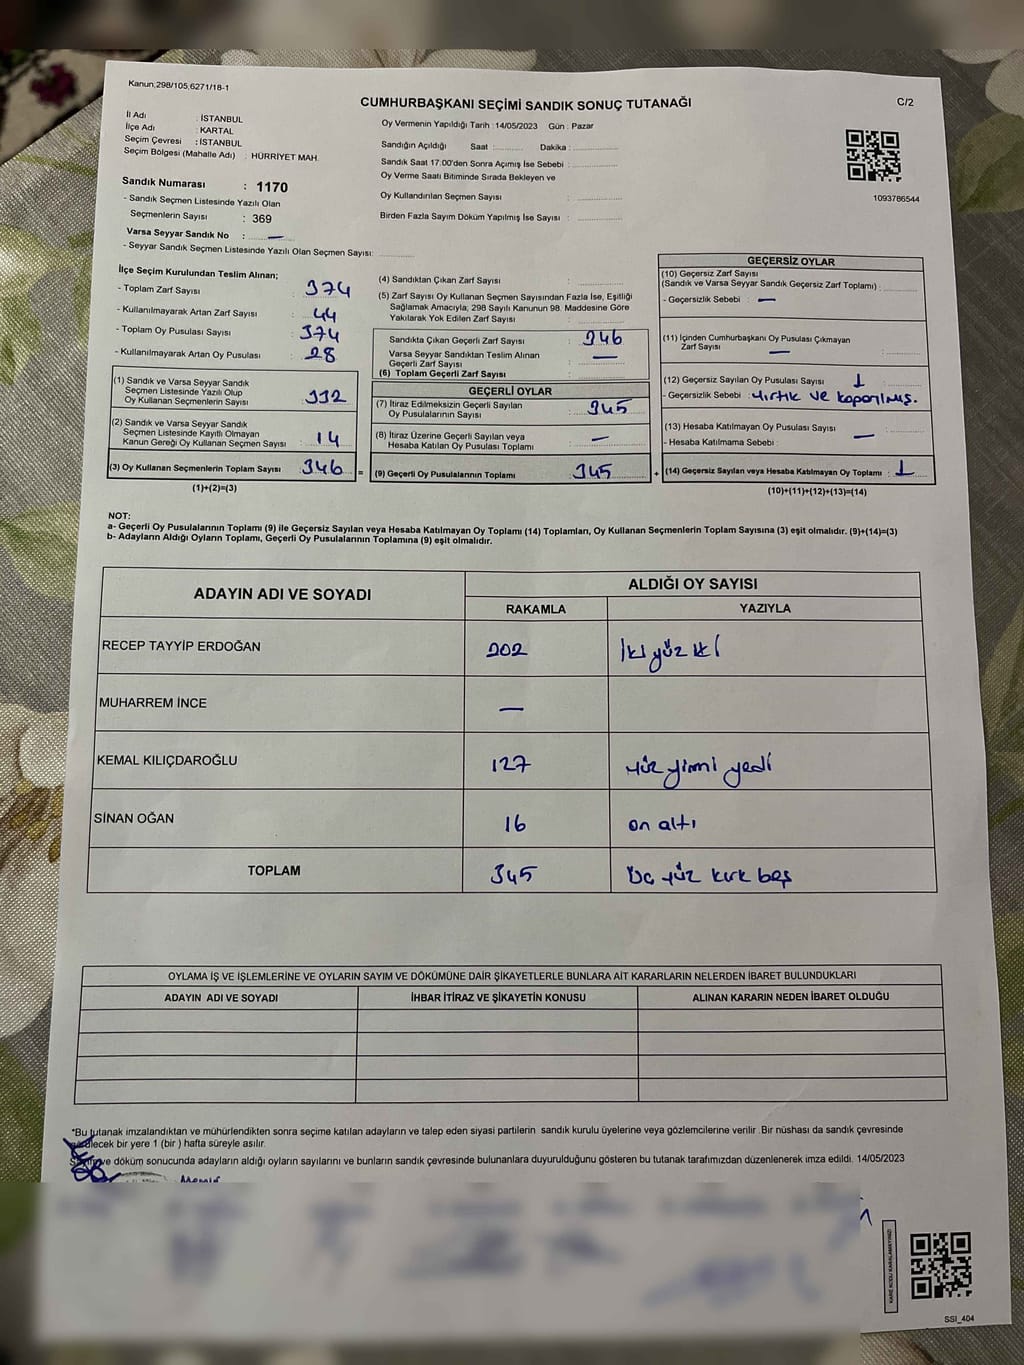 Kanun;298/105,6271/18-1
CUMHURBAŞKANI SEÇİMİ SANDIK SONUÇ TUTANAĞI
C/2
İl Adı : İSTANBUL
İlçe Adı : KARTAL
Seçim Çevresi : İSTANBUL
Seçim Bölgesi (Mahalle Adı) : HÜRRİYET MAH.
Sandık Numarası : 1170
- Sandık Seçmen Listesinde Yazılı Olan
Seçmenlerin Sayısı : 369
Varsa Seyyar Sandık No : —
- Seyyar Sandık Seçmen Listesinde Yazılı Olan Seçmen Sayısı:
Oy Vermenin Yapıldığı Tarih :14/05/2023 Gün : Pazar
Sandığın Açıldığı Saat : Dakika :
Sandık Saat 17.00'den Sonra Açımış İse Sebebi :
Oy Verme Saati Bitiminde Sırada Bekleyen ve
Oy Kullandırılan Seçmen Sayısı :
Birden Fazla Sayım Döküm Yapılmış İse Sayısı :
1093786544
İlçe Seçim Kurulundan Teslim Alınan;
- Toplam Zarf Sayısı : 374
- Kullanılmayarak Artan Zarf Sayısı : 44
- Toplam Oy Pusulası Sayısı : 374
- Kullanılmayarak Artan Oy Pusulası : 28
(1) Sandık ve Varsa Seyyar Sandık
Seçmen Listesinde Yazılı Olup
Oy Kullanan Seçmenlerin Sayısı : 332
(2) Sandık ve Varsa Seyyar Sandık
Seçmen Listesinde Kayıtlı Olmayan
Kanun Gereği Oy Kullanan Seçmen Sayısı : 14
(3) Oy Kullanan Seçmenlerin Toplam Sayısı : 346 =
(1)+(2)=(3)
(4) Sandıktan Çıkan Zarf Sayısı :
(5) Zarf Sayısı Oy Kullanan Seçmen Sayısından Fazla İse, Eşitliği
Sağlamak Amacıyla; 298 Sayılı Kanunun 98. Maddesine Göre
Yakılarak Yok Edilen Zarf Sayısı :
Sandıkta Çıkan Geçerli Zarf Sayısı : 346
Varsa Seyyar Sandıktan Teslim Alınan
Geçerli Zarf Sayısı : —
(6) Toplam Geçerli Zarf Sayısı :
GEÇERLİ OYLAR
(7) İtiraz Edilmeksizin Geçerli Sayılan
Oy Pusulalarının Sayısı : 345
(8) İtiraz Üzerine Geçerli Sayılan veya
Hesaba Katılan Oy Pusulası Toplamı : —
(9) Geçerli Oy Pusulalarının Toplamı : 345 +
GEÇERSİZ OYLAR
(10) Geçersiz Zarf Sayısı
(Sandık ve Varsa Seyyar Sandık Geçersiz Zarf Toplamı) :
- Geçersizlik Sebebi : —
(11) İçinden Cumhurbaşkanı Oy Pusulası Çıkmayan
Zarf Sayısı : —
(12) Geçersiz Sayılan Oy Pusulası Sayısı : 1
- Geçersizlik Sebebi : Yırtık ve koparılmış.
(13) Hesaba Katılmayan Oy Pusulası Sayısı :
- Hesaba Katılmama Sebebi : —
(14) Geçersiz Sayılan veya Hesaba Katılmayan Oy Toplamı : 1
(10)+(11)+(12)+(13)=(14)
NOT:
a- Geçerli Oy Pusulalarının Toplamı (9) ile Geçersiz Sayılan veya Hesaba Katılmayan Oy Toplamı (14) Toplamları, Oy Kullanan Seçmenlerin Toplam Sayısına (3) eşit olmalıdır. (9)+(14)=(3)
b- Adayların Aldığı Oyların Toplamı, Geçerli Oy Pusulalarının Toplamına (9) eşit olmalıdır.
ADAYIN ADI VE SOYADI
ALDIĞI OY SAYISI
RAKAMLA YAZIYLA
RECEP TAYYİP ERDOĞAN 202 İki yüz iki
MUHARREM İNCE —
KEMAL KILIÇDAROĞLU 127 yüz yirmi yedi
SİNAN OĞAN 16 on altı
TOPLAM 345 Üç yüz kırk beş
OYLAMA İŞ VE İŞLEMLERİNE VE OYLARIN SAYIM VE DÖKÜMÜNE DAİR ŞİKAYETLERLE BUNLARA AİT KARARLARIN NELERDEN İBARET BULUNDUKLARI
ADAYIN ADI VE SOYADI İHBAR İTİRAZ VE ŞİKAYETİN KONUSU ALINAN KARARIN NEDEN İBARET OLDUĞU
*Bu tutanak imzalandıktan ve mühürlendikten sonra seçime katılan adayların ve talep eden siyasi partilerin sandık kurulu üyelerine veya gözlemcilerine verilir .Bir nüshası da sandık çevresinde
görülecek bir yere 1 (bir ) hafta süreyle asılır.
ve döküm sonucunda adayların aldığı oyların sayılarını ve bunların sandık çevresinde bulunanlara duyurulduğunu gösteren bu tutanak tarafımızdan düzenlenerek imza edildi. 14/05/2023
SSI_404